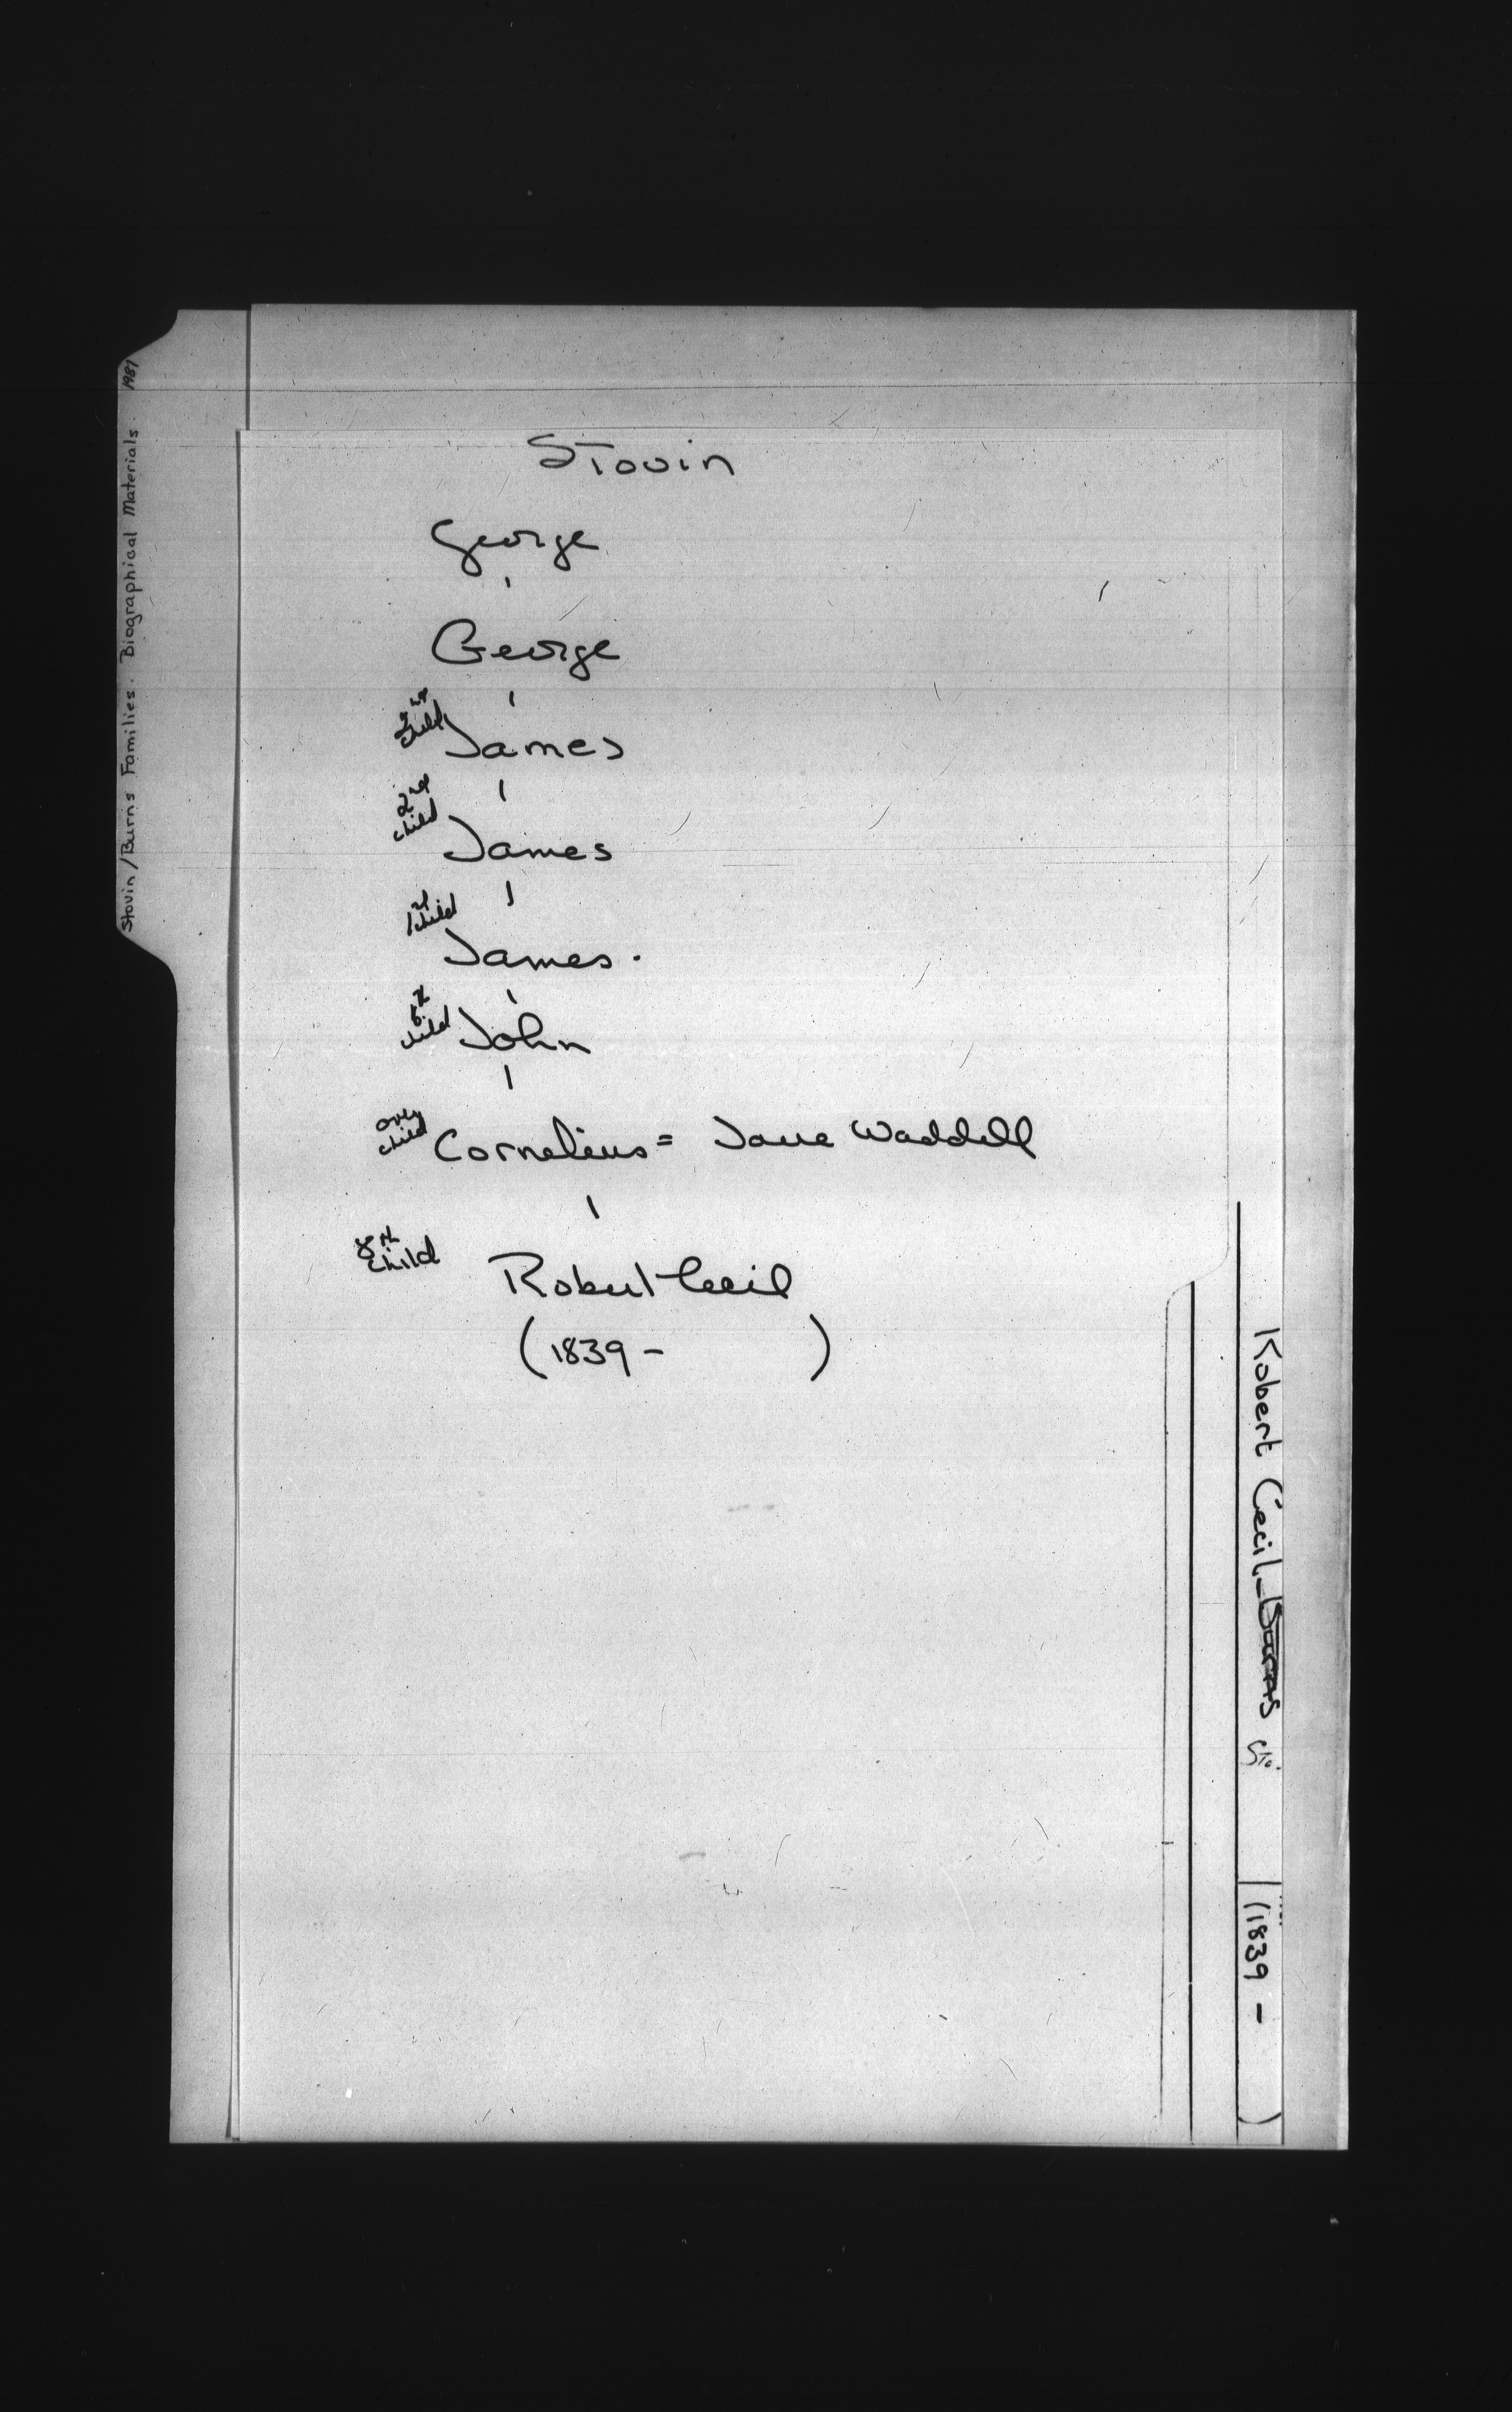 Stovin/Burns Families. Biographical Materials 1981
Stovin
George
George
2nd child James
2nd child James
1st child James.
6th child John
only child Cornelius = Jane Waddell
8th child Robert Cecil
(1839 - )
Robert Cecil Burns Sto. (1839 - )